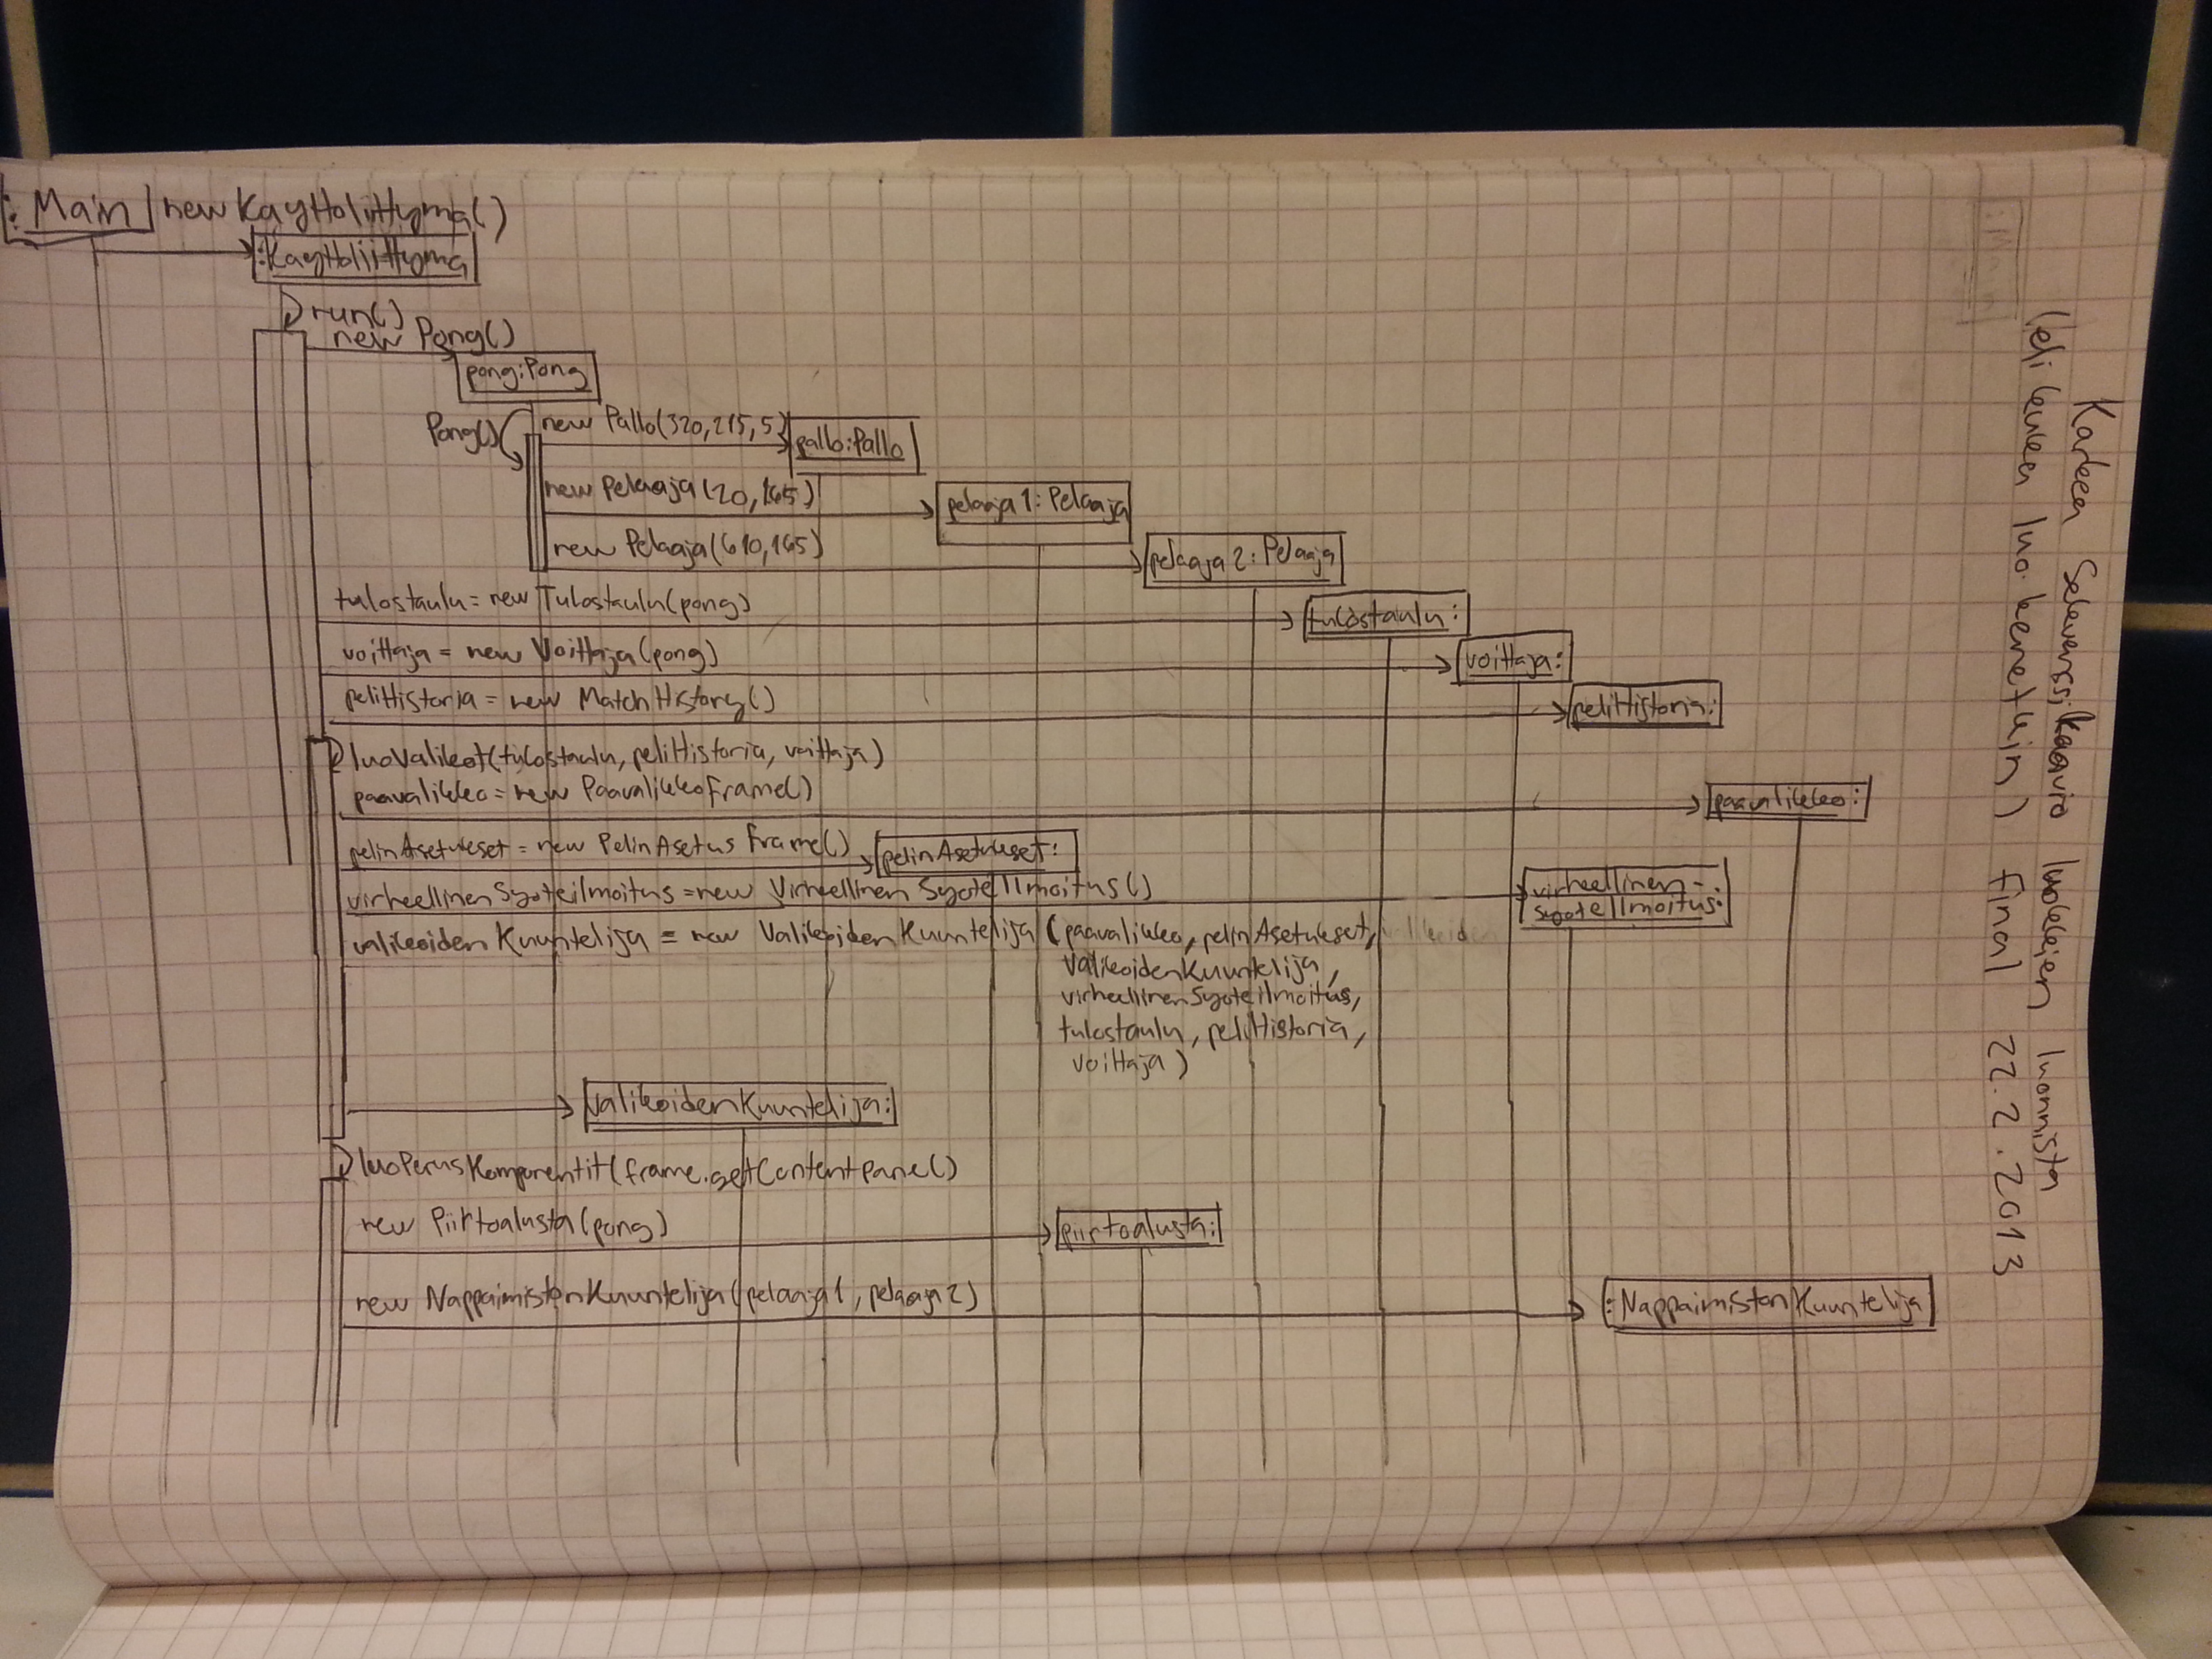 :Main new Kayttoliittyma()
:Kayttoliittyma
run()
new Pong()
pong:Pong
Pong()
new Pallo(320,215,5)
pallo:Pallo
new Pelaaja(20,165)
pelaaja1:Pelaaja
new Pelaaja(610,165)
pelaaja2:Pelaaja
tulostaulu = new Tulostaulu(pong)
tulostaulu:
voittaja = new Voittaja(pong)
voittaja:
peliHistoria = new MatchHistory()
peliHistoria:
luoValikot(tulostaulu, peliHistoria, voittaja)
paavalikko = new PaavalikkoFrame()
paavalikko:
pelinAsetukset = new PelinAsetusFrame()
pelinAsetukset:
virheellinenSyoteilmoitus = new VirheellinenSyoteIlmoitus()
virheellinen-
syoteIlmoitus:
valikoidenKuuntelija = new ValikoidenKuuntelija(paavalikko, pelinAsetukset,
ValikoidenKuuntelija,
virheellinenSyoteilmoitus,
tulostaulu, peliHistoria,
voittaja)
ValikoidenKuuntelija:
luoPerusKomponentit(frame.getContentPane()
new Piirtoalusta(pong)
piirtoalusta:
new NappaimistonKuuntelija(pelaaja1, pelaaja2)
:NappaimistonKuuntelija
:Main
Karkea Sekvenssikaavio luokkien luonnista
(eli kuka luo kenetkin) final 22.2.2013